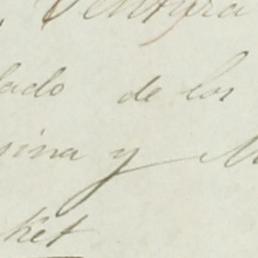 Ventura
lado de los
sina y M
ket